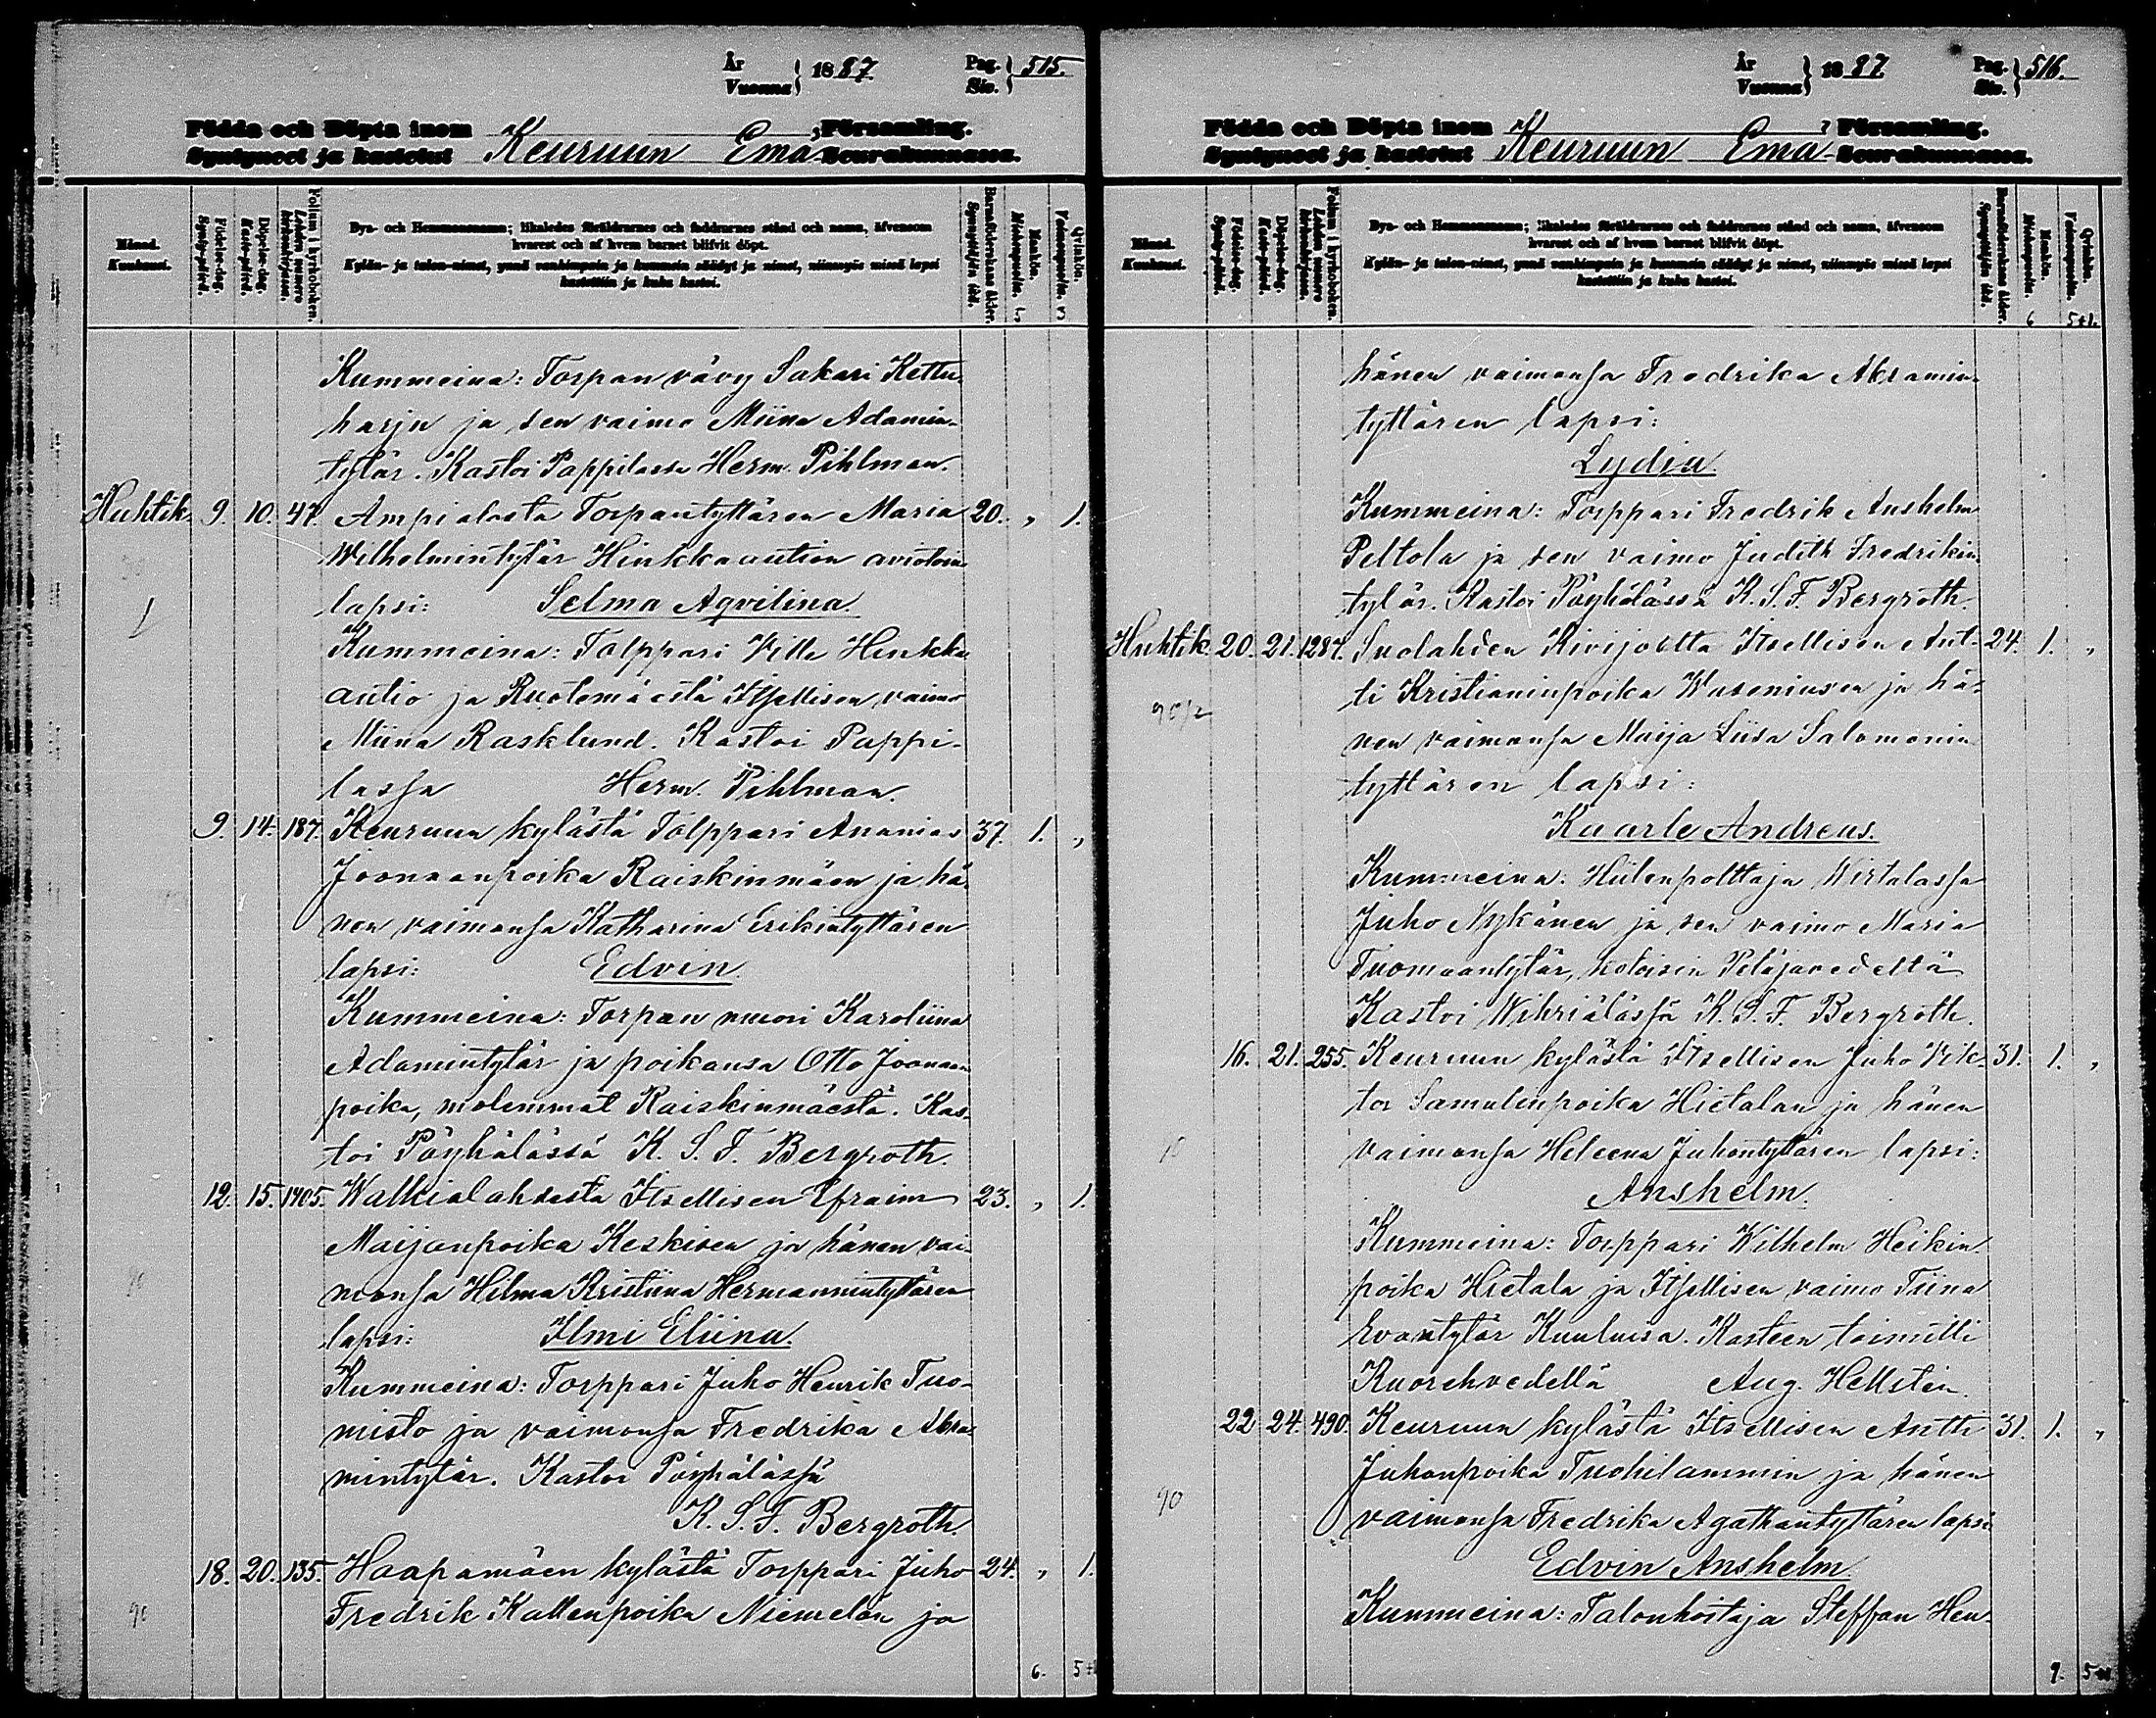 År
Vuonna } 1887. Pag.
Siv. } 515.
Födda och Döpta inom
Syntyneet ja kastetut Keuruun Emä Församling.
Seurakunnassa.
Månad.
Kuukausi.
Födelse-dag.
Synty-päivä.
Döpelse-dag.
Kaste-päivä.
Folium i kyrkoboken.
Lehden numero kirkonkirjassa.
Bya- och Hemmansnamn; likaledes föräldrarnes och faddrarnes stånd och namn, äfvensom
hvarest och af hvem barnet blifvit döpt.
Kylän- ja talon-nimet, ynnä vanhimpain ja kummein säädyt ja nimet, niinmyös missä lapsi
kastettiin ja kuka kastoi.
Barnaföderskans ålder.
Synnyttäjän ikä.
Mankön.
Miehenpuolia.
Qvinkön.
Vaimonpuolia.
Kummeina: Torpan vävy Sakari Kettu-
harju ja sen vaimo Miina Adamin-
tytär. Kastoi Pappilassa Herm. Pihlman.
Huhtik. 9. 10. 47. Ampialasta Torpantyttären Maria 20. „ 1.
Wilhelmintytär Hinkkaaution aviotoin
lapsi: Selma Aqvilina.
Kummeina: Torppari Ville Hinkka
autio ja Ruotomäestä Itsellisen vaimo
Miina Rasklund. Kastoi Pappi-
lassa Herm. Pihlman.
9. 14. 187. Keuruun kylästä Torppari Ananias 37. 1. „
Joonaanpoika Raiskinmäen ja hä-
nen vaimonsa Katharina Erikintyttären
lapsi: Edvin.
Kummeina: Torpan muori Karoliina
Adamintytär ja poikansa Otto Joonaan
poika, molemmat Raiskinmäestä. Kas-
toi Pöyhölässä K. S. F. Bergroth.
12. 15. 1405. Walkialahdesta Itsellisen Efraim 23. „ 1.
Maijanpoika Keskisen ja hänen vai-
monsa Hilma Kristiina Hermannintyttären
lapsi: Ilmi Eliina.
Kummeina: Torppari Juho Henrik Tuo-
misto ja vaimonsa Fredrika Abra-
mintytär. Kastoi Pöyhölässä
K. S. F. Bergroth.
18. 20. 135. Haapamäen kylästä Torppari Juho 24. „ 1.
90 Fredrik Kallenpoika Niemelän ja
6. 5+1
År
Vuonna } 1887. Pag.
Siv. } 516.
Födda och Döpta inom
Syntyneet ja kastetut Keuruun Emä- Församling.
Seurakunnassa.
Månad.
Kuukausi.
Födelse-dag.
Synty-päivä.
Döpelse-dag.
Kaste-päivä.
Folium i kyrkoboken.
Lehden numero kirkonkirjassa.
Bya- och Hemmansnamn; likaledes föräldrarnes och faddrarnes stånd och namn, äfvensom
hvarest och af hvem barnet blifvit döpt.
Kylän- ja talon-nimet, ynnä vanhimpain ja kummein säädyt ja nimet, niinmyös missä lapsi
kastettiin ja kuka kastoi.
Barnaföderskans ålder.
Synnyttäjän ikä.
Mankön.
Miehenpuolia.
Qvinkön.
Vaimonpuolia.
6 5+1.
hänen vaimonsa Fredrika Abramin-
tyttären lapsi:
Lydia.
Kummeina: Torppari Fredrik Anshelm
Peltola ja sen vaimo Judith Fredrikin
tytär. Kastoi Pöyhölässä K. S. F. Bergroth.
Huhtik. 20. 21. 1287. Suolahden Kivijoelta Itsellisen Ant- 24. 1. „
ti Kristianinpoika Waseniusen ja hä-
nen vaimonsa Maija Liisa Salomonin
tyttären lapsi:
Kaarle Andreas.
Kummeina: Hiilenpolttaja Wirtalassa
Juho Nykänen ja sen vaimo Maria
Tuomaantytär, kotoisin Petäjavedeltä
Kastoi Wihriälässä K. S. F. Bergroth.
16. 21. 255. Keuruun kylästä Itsellisen Juho Vik- 31. 1. „
tor Samulinpoika Hietalan ja hänen
vaimonsa Heleena Juhontyttären lapsi:
Anshelm.
Kummeina: Torppari Wilhelm Heikin
poika Hietala ja Itsellisen vaimo Tiina
Evantytär Kuuluisa. Kasteen toimitti
Kuorehvedellä Aug. Hellsten.
22 24. 490. Keuruun kylästä Itsellisen Antti 31. 1. „
Juhonpoika Tuohilammin ja hänen
90 vaimonsa Fredrika Agathantyttären lapsi
Edvin Anshelm.
Kummeina: Talonhoitaja Steffan Hen-
9. 5+1